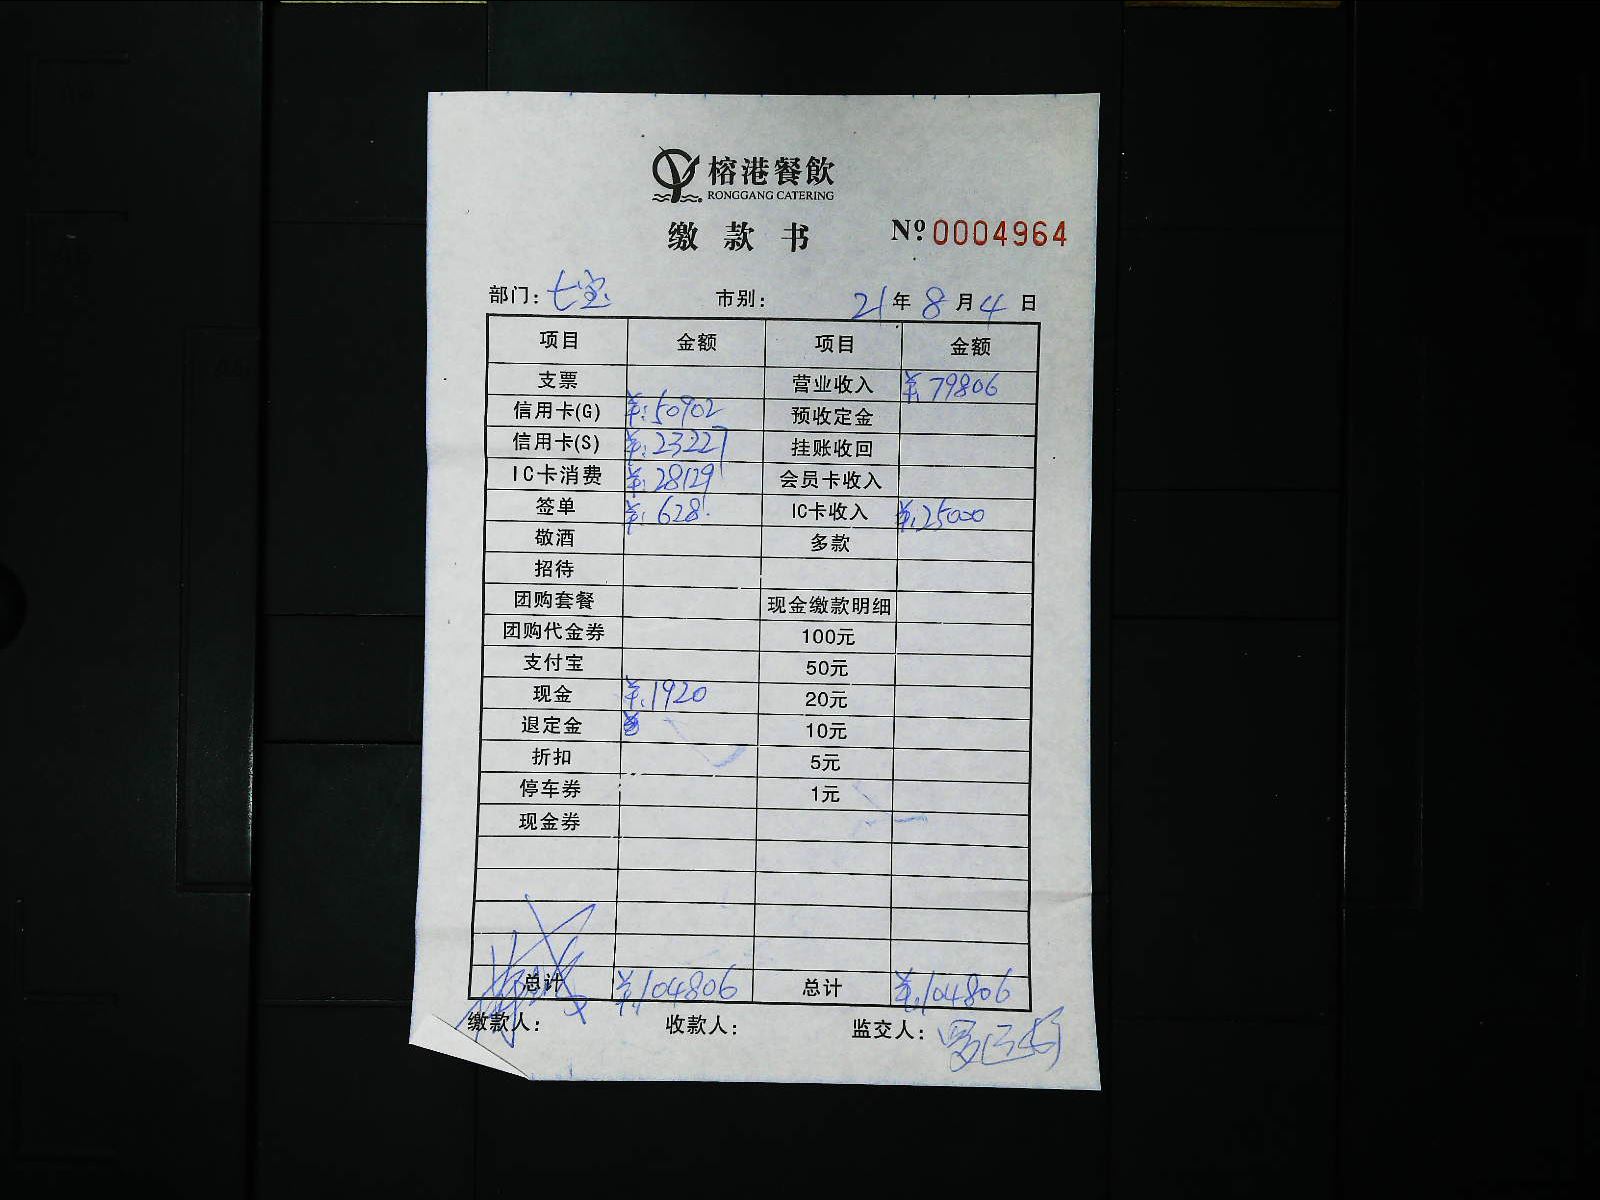 榕港餐飲
RONGGANG CATERING
缴款书 Nº 0004964
部门：七宝 市别： 21年8月4日
项目 金额 项目 金额
支票 营业收入 ¥:79806
信用卡(G) ¥:50902 预收定金
信用卡(S) ¥:23227 挂账收回
IC卡消费 ¥:28129 会员卡收入
签单 ¥:628 IC卡收入 ¥:25000
敬酒 多款
招待
团购套餐 现金缴款明细
团购代金券 100元
支付宝 50元
现金 ¥:1920 20元
退定金 10元
折扣 5元
停车券 1元
现金券
总计 ¥:104806 总计 ¥:104806
缴款人： 收款人： 监交人：